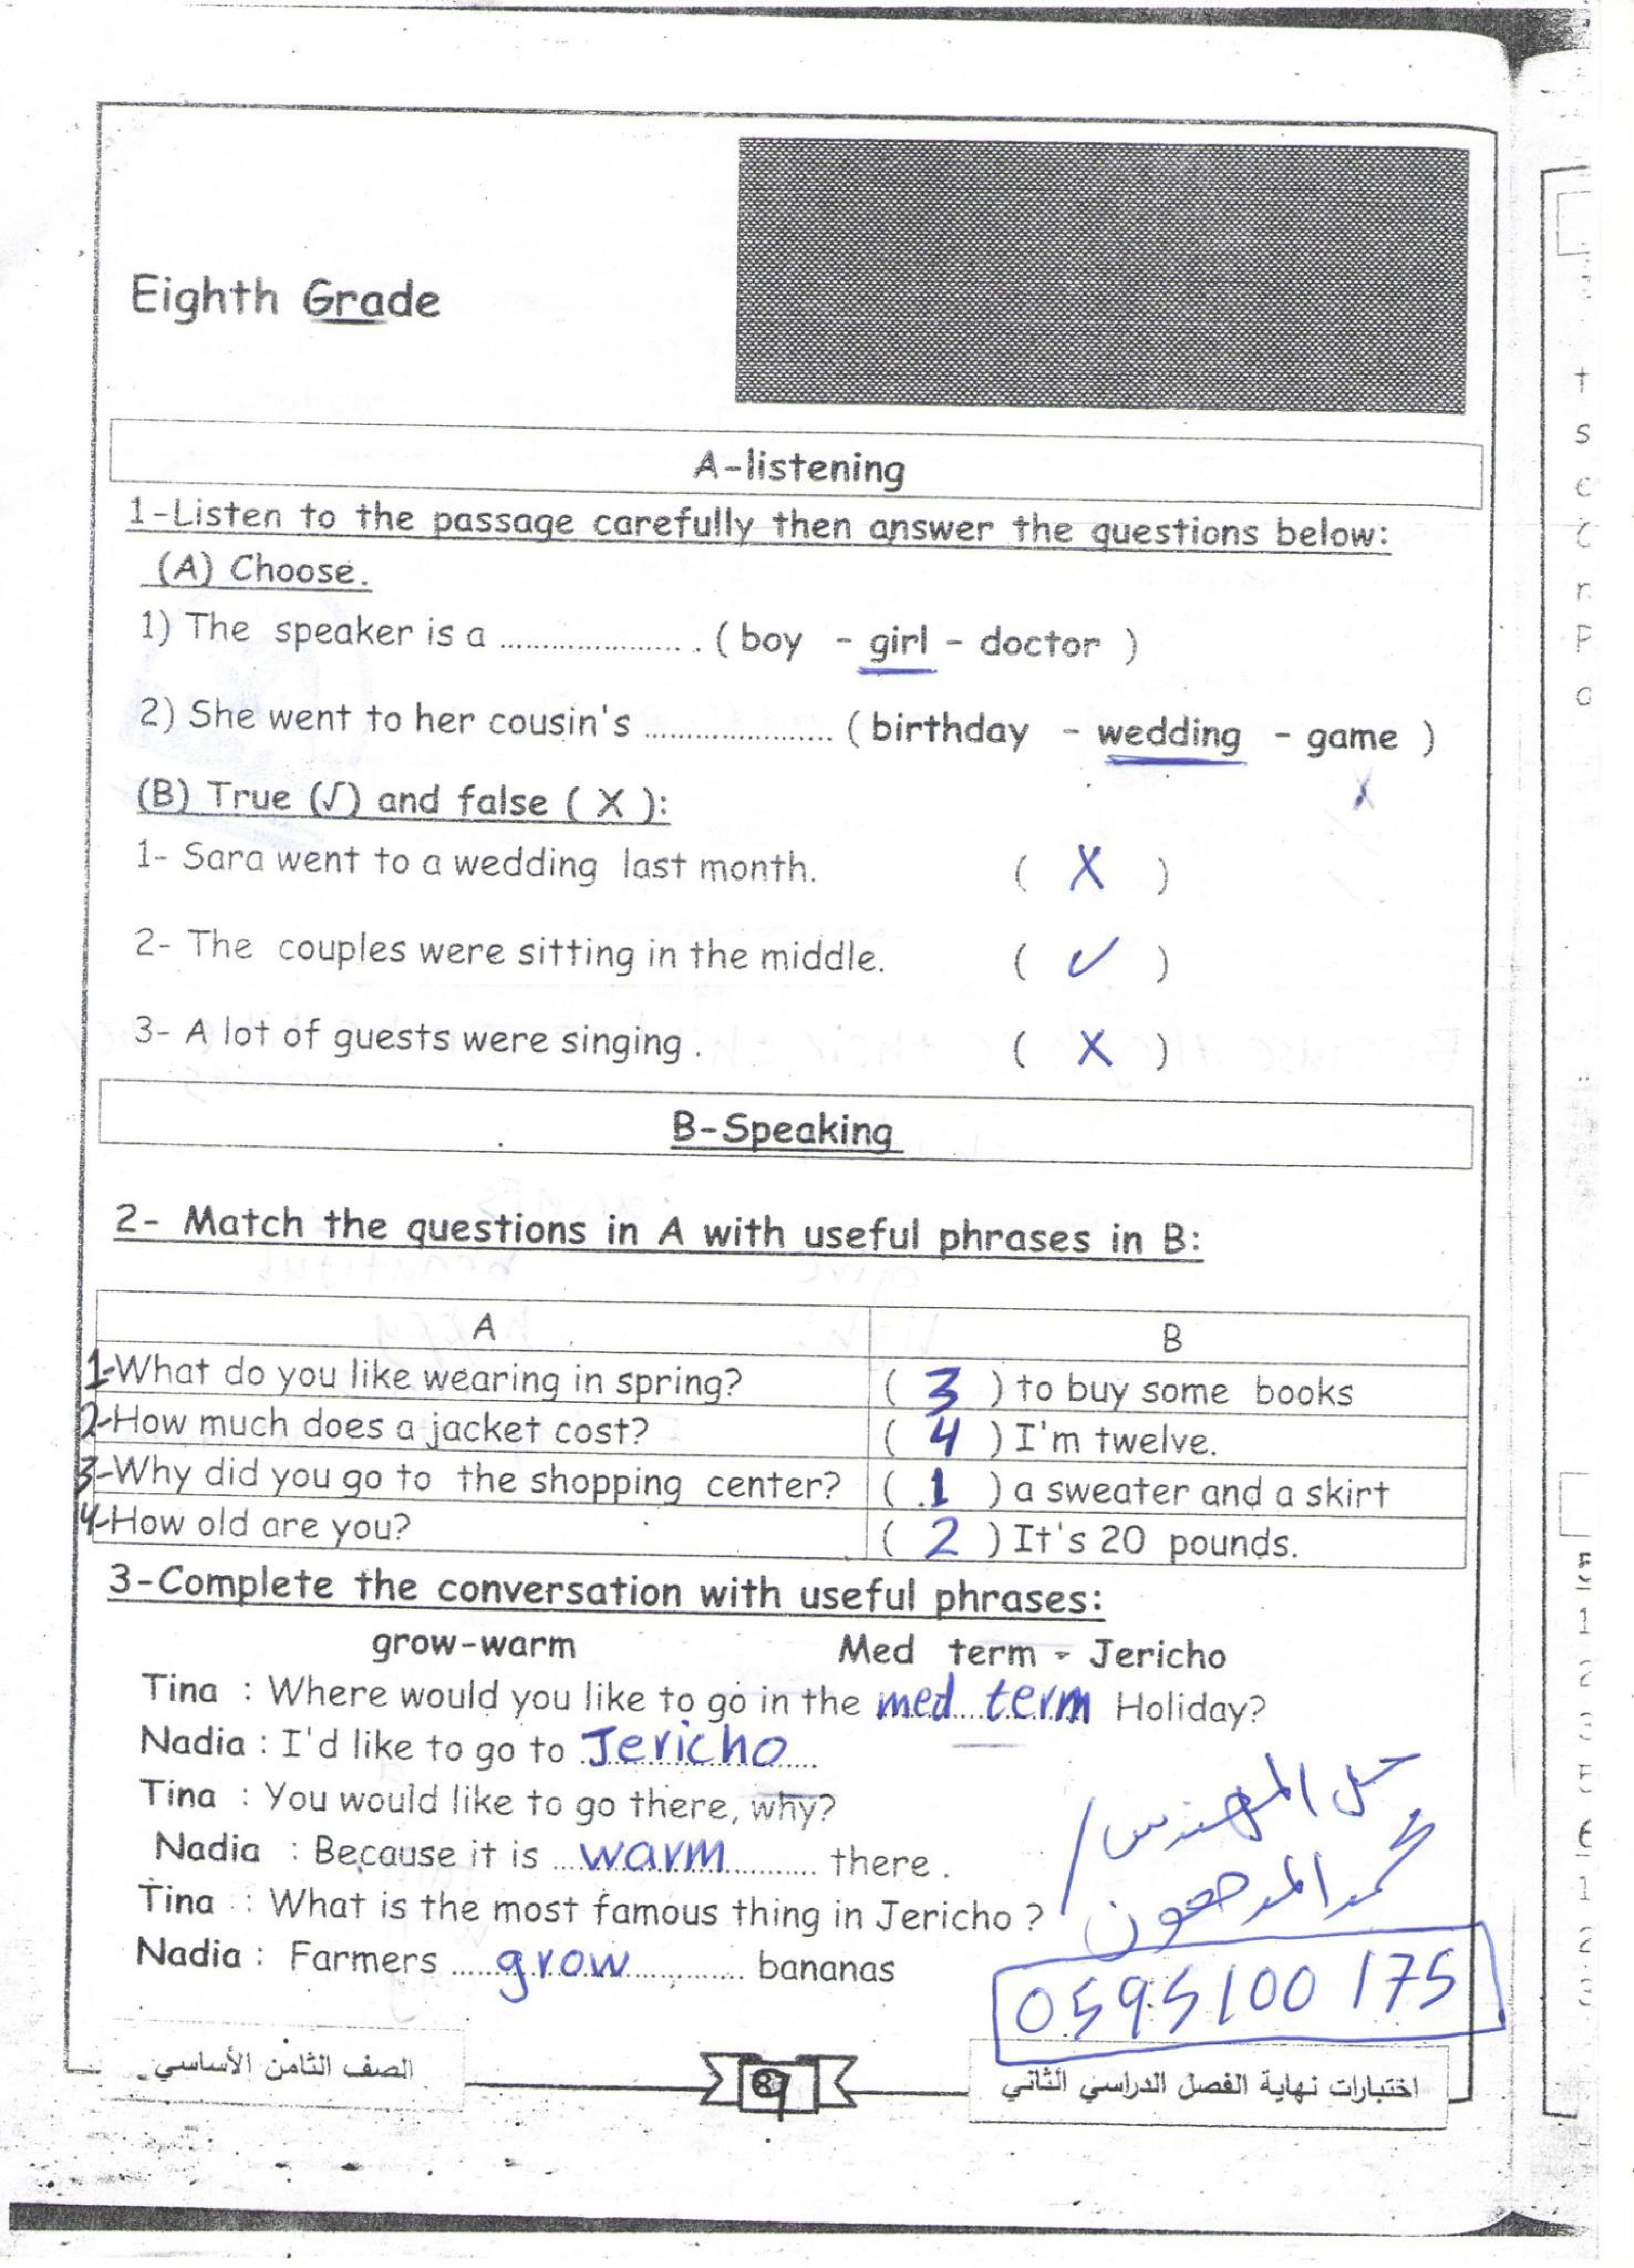 Eighth Grade
A-listening
1-Listen to the passage carefully then answer the questions below:
(A) Choose.
1) The speaker is a .................... . ( boy - girl - doctor )
2) She went to her cousin's ..................... ( birthday - wedding - game )
(B) True (√) and false ( X ):
X
1- Sara went to a wedding last month. ( X )
2- The couples were sitting in the middle. ( ✓ )
3- A lot of guests were singing . ( X )
B-Speaking
2- Match the questions in A with useful phrases in B:
A B
1-What do you like wearing in spring? ( 3 ) to buy some books
2-How much does a jacket cost? ( 4 ) I'm twelve.
3-Why did you go to the shopping center? ( 1 ) a sweater and a skirt
4-How old are you? ( 2 ) It's 20 pounds.
3-Complete the conversation with useful phrases:
grow-warm Med term - Jericho
Tina : Where would you like to go in the med term Holiday?
Nadia : I'd like to go to Jericho
Tina : You would like to go there, why?
Nadia : Because it is warm there .
Tina : What is the most famous thing in Jericho ?
Nadia : Farmers grow bananas
حل المهندس /
محمد المدهون
0595100 175
الصف الثامن الأساسي
اختبارات نهاية الفصل الدراسي الثاني